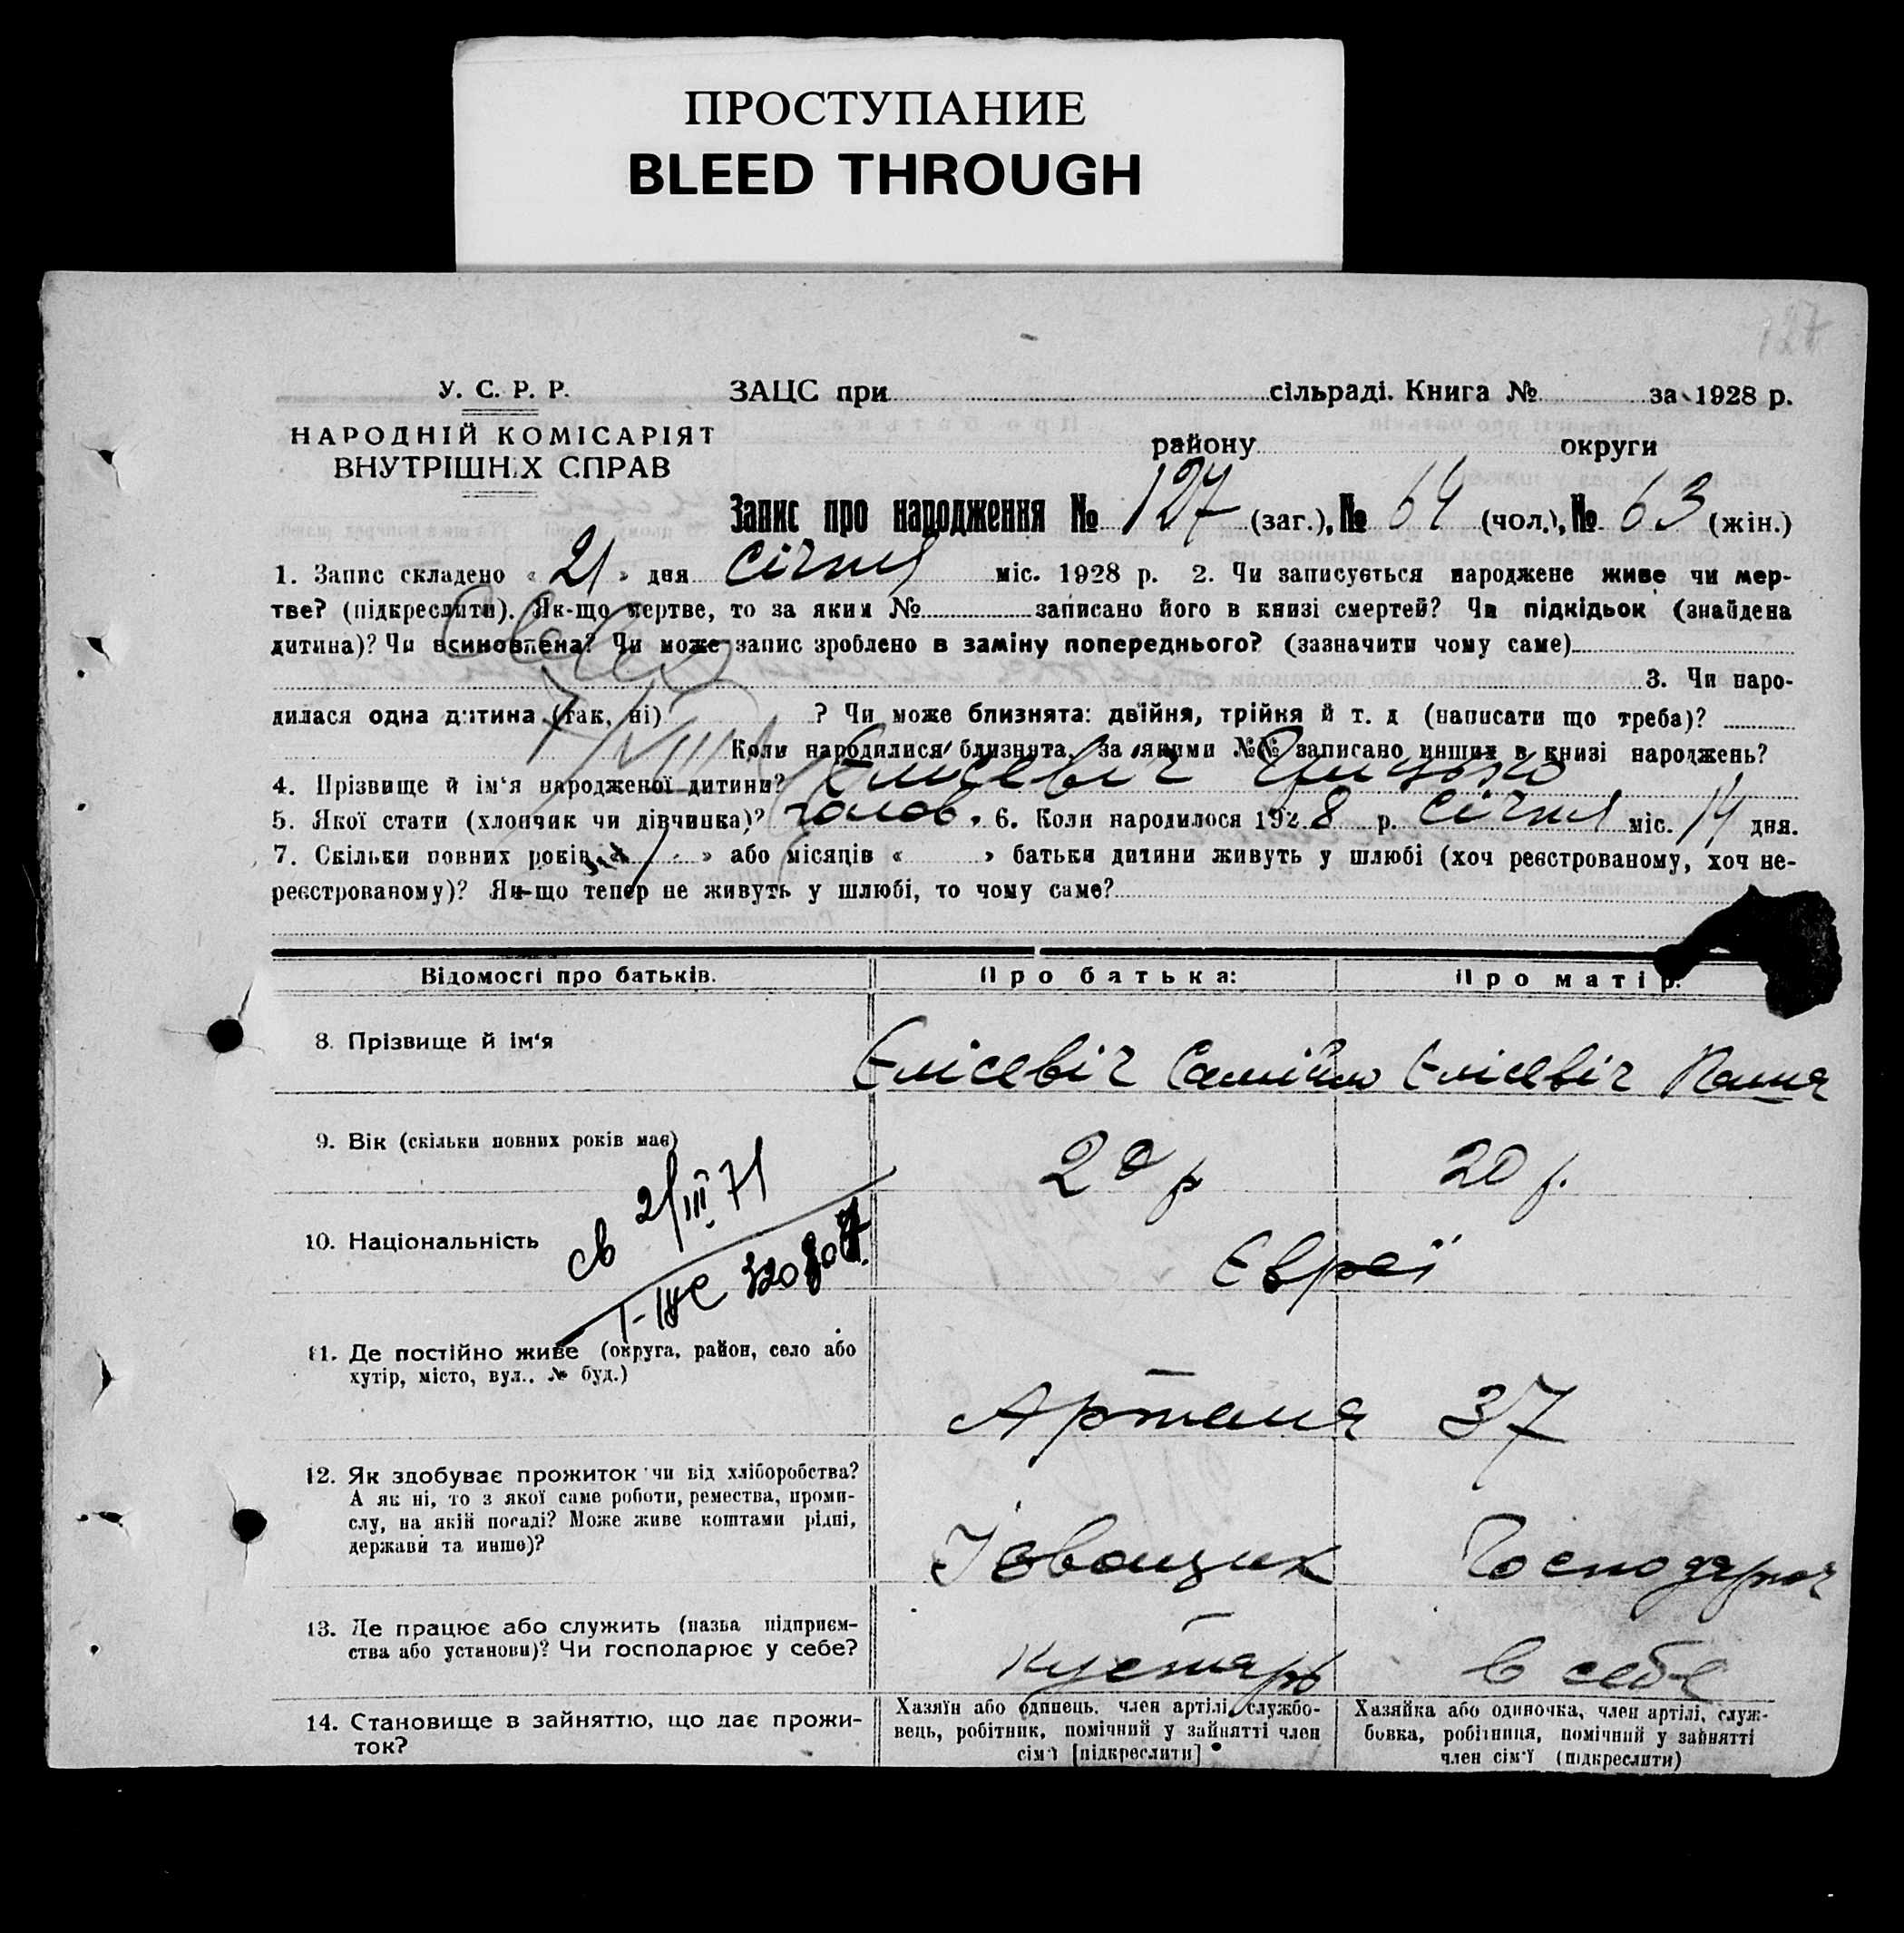 ПРОСТУПАНИЕ
BLEED THROUGH
127
У. С. Р. Р.
НАРОДНІЙ КОМІСАРІЯТ
ВНУТРІШНІХ СПРАВ
ЗАЦС при сільраді. Книга № за 1928 р.
району округи
Запис про народження № 127 (заг.), № 64 (чол.), № 63 (жін.)
1. Запис складено « 21 » дня Січня міс. 1928 р. 2. Чи записується народжене живе чи мер-
тве? (підкреслити). Як-що мертве, то за яким № записано його в книзі смертей? Чи підкідьок (знайдена
дитина)? Чи всиновлена? Чи може запис зроблено в заміну попереднього? (зазначити чому саме)
3. Чи наро-
дилася одна дитина (так, ні) ? Чи може близнята: двійня, трійня й т. д (написати що треба)?
Коли народилися близнята, за якими №№ записано инших в книзі народжень?
4. Прізвище й ім'я народженої дитини? Єлісевіч
5. Якої стати (хлопчик чи дівчинка)? чолов. 6. Коли народилося 192 8 р. Січня міс. 14 дня.
7. Скільки повних років « » або місяців « » батьки дитини живуть у шлюбі (хоч реєстрованому, хоч не-
реєстрованому)? Як-що тепер не живуть у шлюбі, то чому саме?
Відомості про батьків. Про батька: Про матір:
8. Прізвище й ім'я Єлісевіч Самійло Єлісевіч
9. Вік (скільки повних років має) 20 р 20 р.
св 21/III 71
10. Національність Євреї
11. Де постійно живе (округа, район, село або
хутір, місто, вул., № буд.)
Артема 37
12. Як здобуває прожиток чи від хліборобства?
А як ні, то з якої саме роботи, ремества, проми-
слу, на якій посаді? Може живе коштами рідні,
держави та инше)?
13. Де працює або служить (назва підприєм-
ства або установи)? Чи господарює у себе?
Кустарь в себе
14. Становище в зайняттю, що дає прожи-
ток?
Хазяїн або одинець, член артілі, службо-
вець, робітник, помічний у зайнятті член
сім'ї [підкреслити]
Хазяйка або одиночка, член артілі, служ-
бовка, робітниця, помічний у зайнятті
член сім'ї (підкреслити)